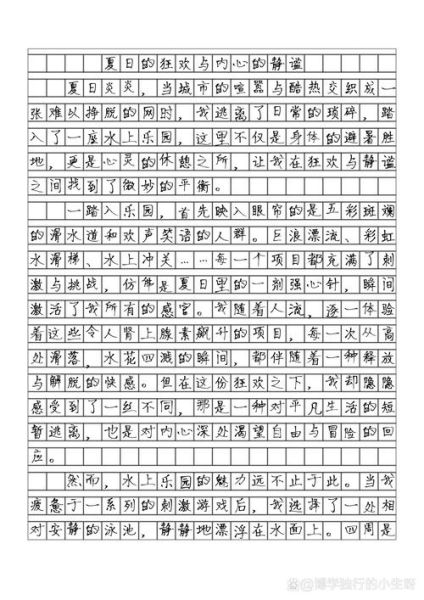 夏日的狂欢与内心的静谧
夏日炎炎，当城市的喧嚣与酷热交织成一
张难以挣脱的网时，我逃离了日常的琐碎，踏
入了一座水上乐园，这里不仅是身体的避暑胜
地，更是心灵的休憩之所，让我在狂欢与静谧
之间找到了微妙的平衡。
一踏入乐园，首先映入眼帘的是五彩斑斓
的滑水道和欢声笑语的人群。巨浪漂流、彩虹
水滑梯、水上冲关……每一个项目都充满了刺
激与挑战，仿佛是夏日里的一剂强心针，瞬间
激活了我所有的感官。我随着人流，逐一体验
着这些令人肾上腺素飙升的项目，每一次从高
处滑落，水花四溅的瞬间，都伴随着一种释放
与解脱的快感。但在这份狂欢之下，我却隐隐
感受到了一丝不同，那是一种对平凡生活的短
暂逃离，也是对内心深处渴望自由与冒险的回
应。
然而，水上乐园的魅力远不止于此。当我
疲惫于一系列的刺激游戏后，我选择了一处相
对安静的泳池，静静地漂浮在水面上。四周是
@博学独行的小生呀